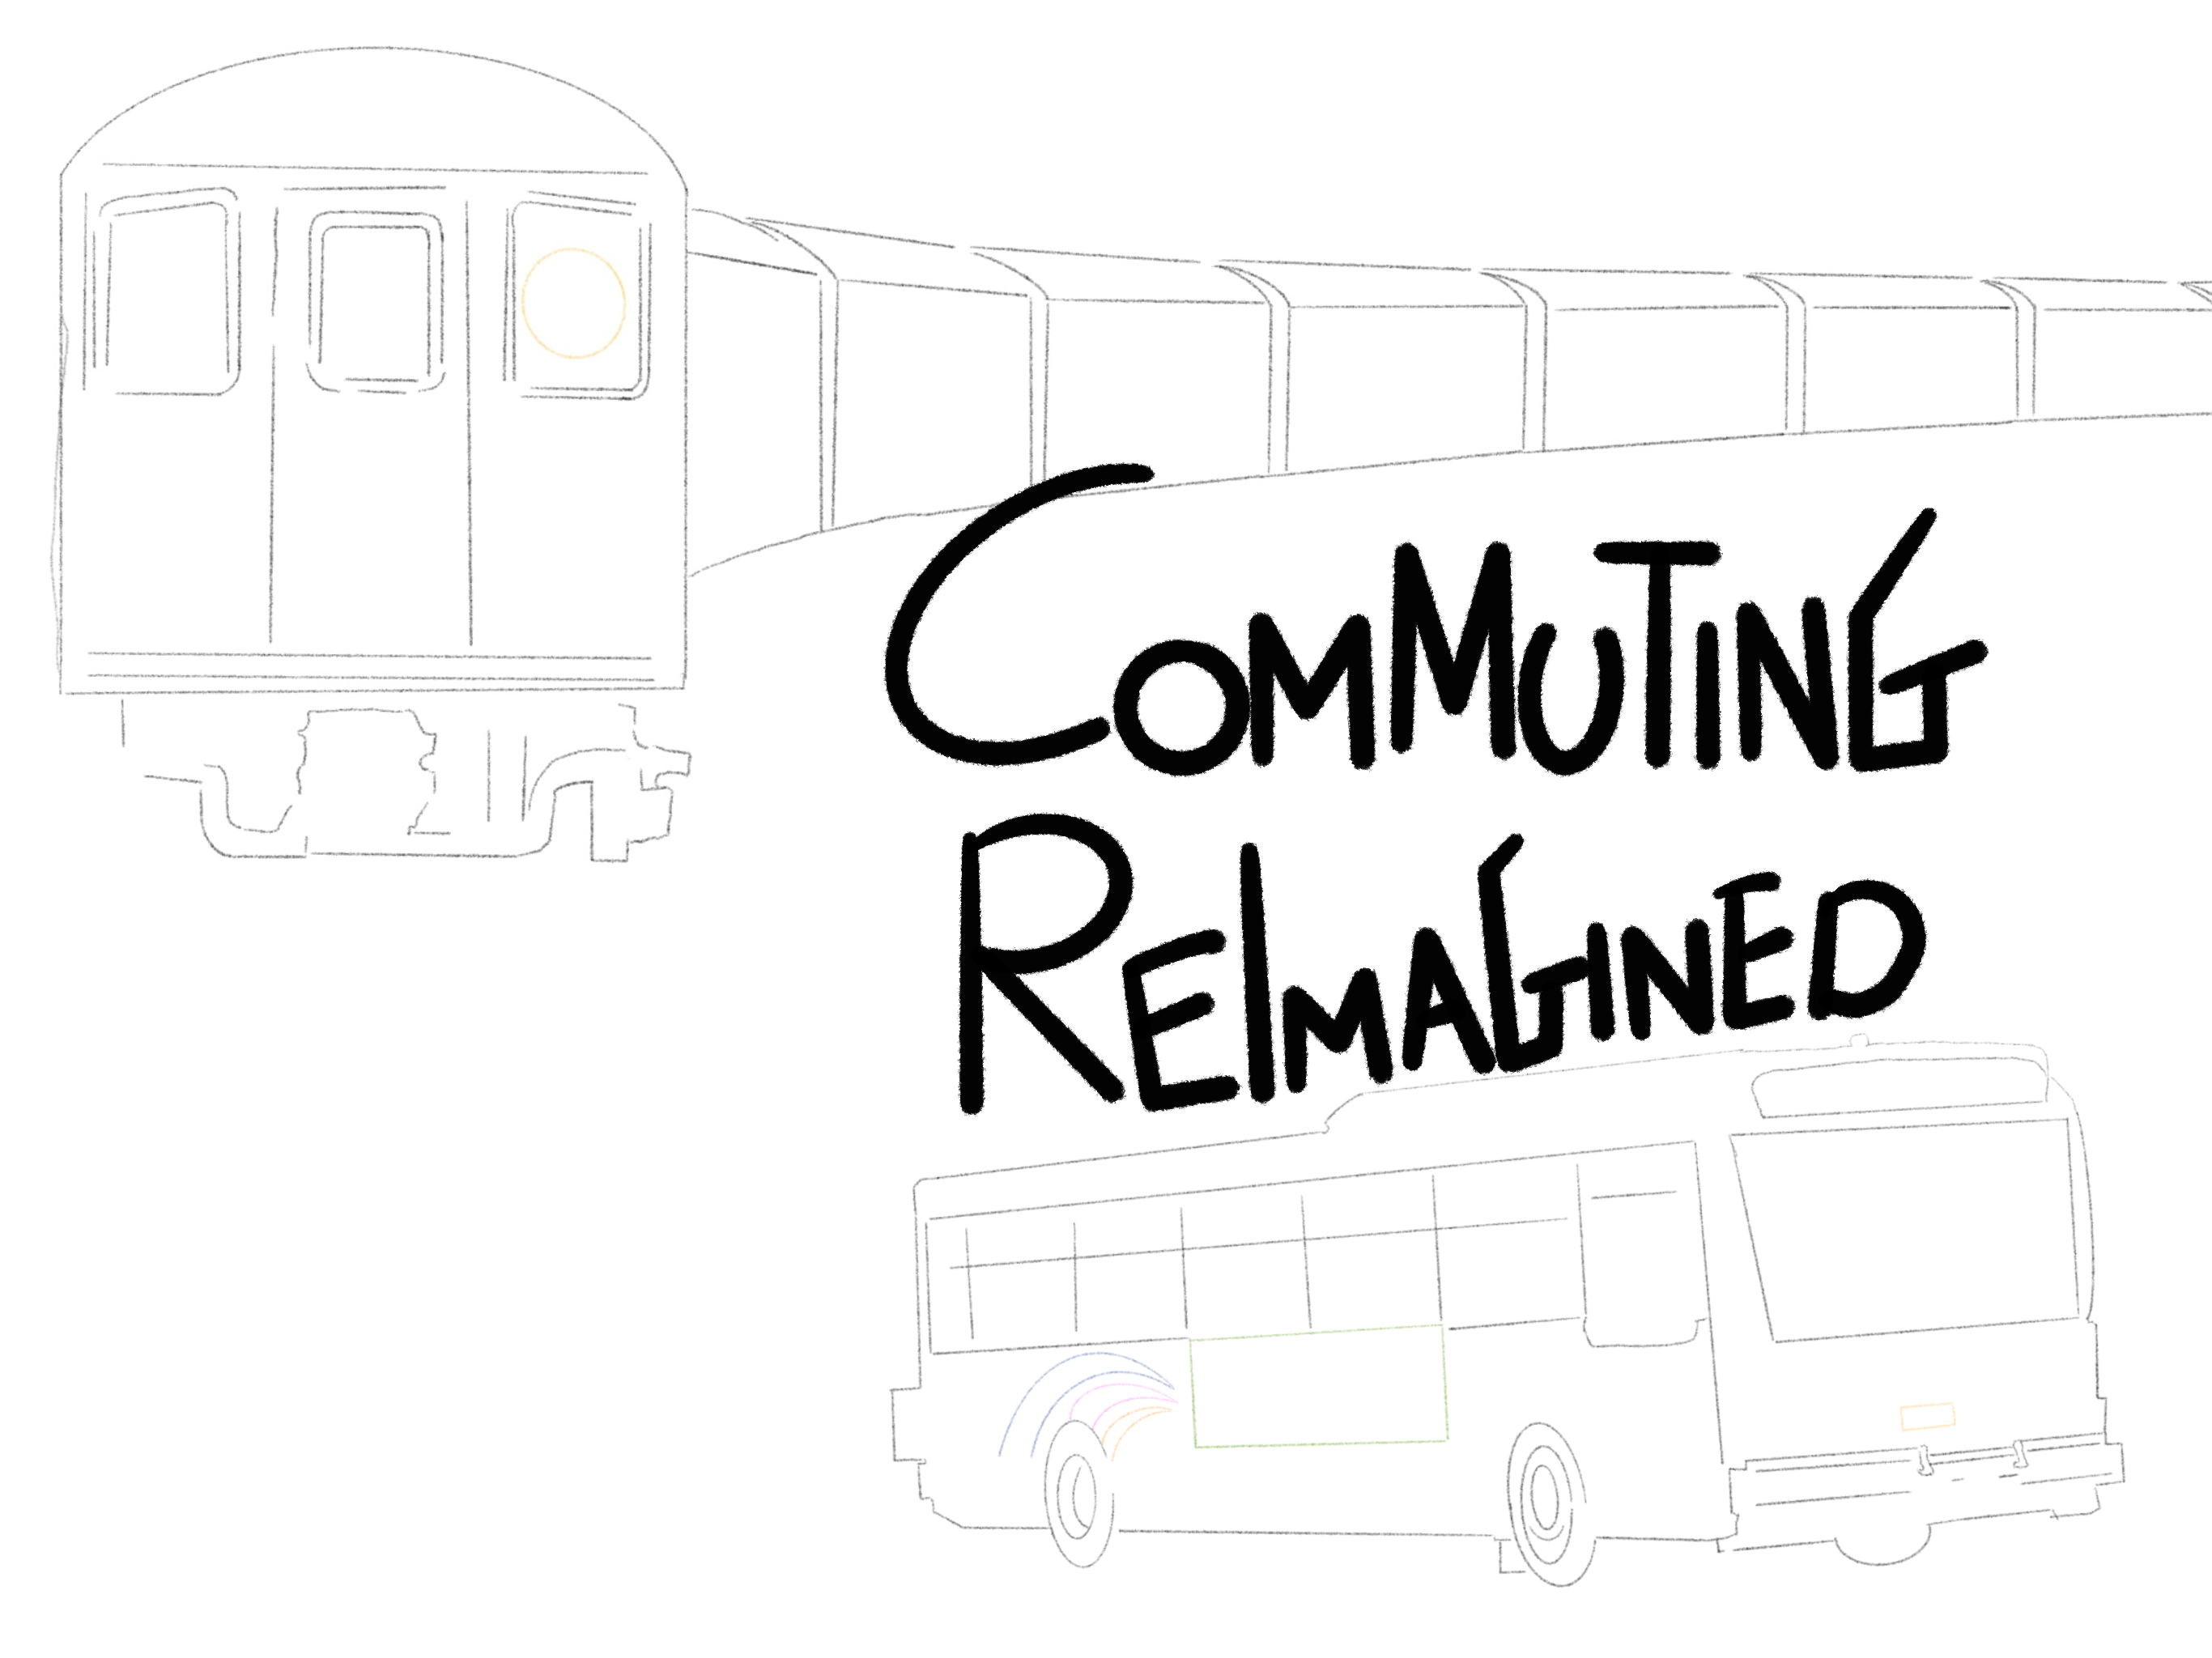 COMMUTING
REIMAGINED